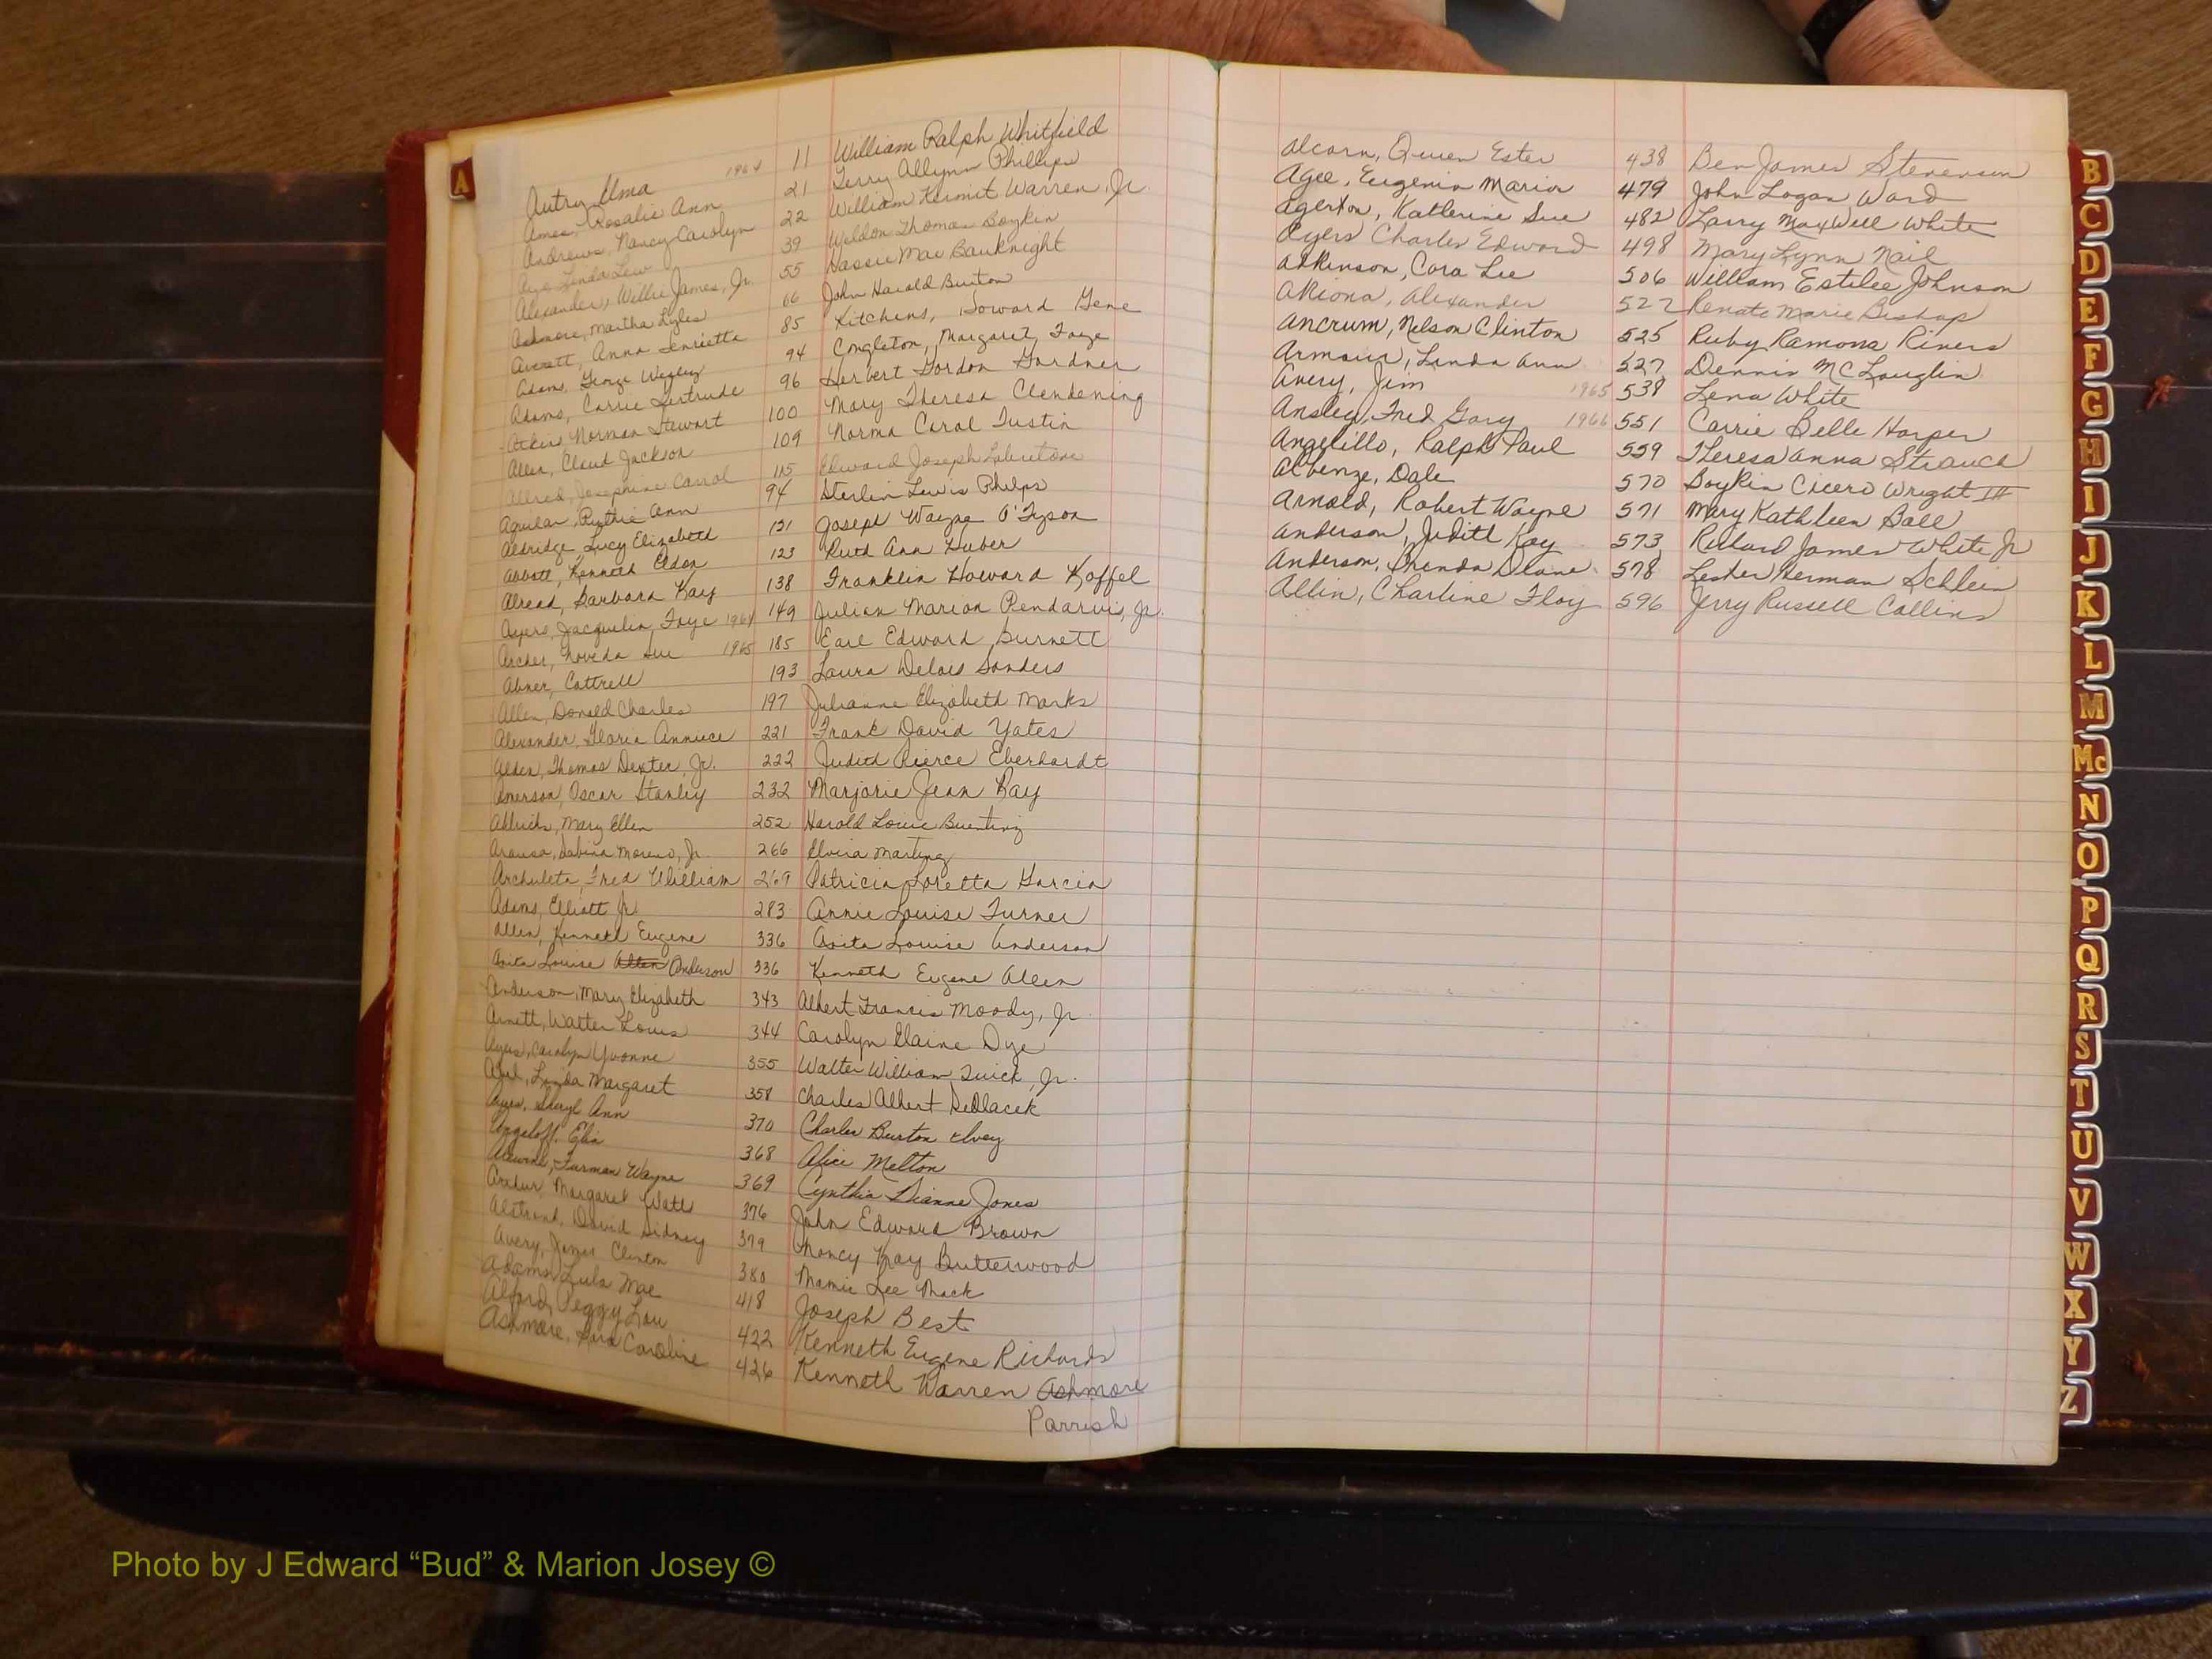 A
Autry, Elma 1964 11 William Ralph Whitfield
Ames, Rosalie Ann 21 Terry Allynn Phillips
Andrews, Nancy Carolyn 22 William Kermit Warren, Jr.
Linda Lew 39 Weldon Thomas Boykin
Alexander, Willie James, Jr. 55 Hassie Mae Bauknight
Ashmore, Martha Lyles 66 John Harold Burton
Averett, Anna Henrietta 85 Kitchens, Howard Gene
Adams, George Wesley 94 Congleton, Margaret Faye
Adams, Carrie Gertrude 96 Herbert Gordon Gardner
Norman Stewart 100 Mary Theresa Clendening
Allen, Claud Jackson 109 Norma Carol Tustin
Allred, Josephine Carrol 115 Edward Joseph
Aguilar, Ruthie Ann 94 Sterlin Lewis Phelps
Aldridge, Lucy Elizabeth 121 Joseph Wayne O'Tyson
Abbott, Kenneth Eldon 123 Ruth Ann Huber
Alread, Barbara Kay 138 Franklin Howard Koffel
Ayers, Jacquelin Faye 1964 149 Julian Marion Pendarvis, Jr.
Archer, Noveda Sue 1965 185 Earl Edward Burnett
Abner, Cottrell 193 Laura Delois Sanders
Allen, Donald Charles 197 Julianne Elizabeth Marks
Alexander, Gloria Anniece 221 Frank David Yates
Alden, Thomas Dexter, Jr. 222 Judith Pierce Eberhardt
Amerson, Oscar Stanley 232 Marjorie Jean Ray
Aldrich, Mary Ellen 252 Harold Louie Buenting
Sabina Moreno, Jr. 266 Elvira Martinez
Archuleta, Fred William 269 Patricia Loretta Garcia
Adams, Elliott Jr. 283 Annie Louise Turner
Allen, Kenneth Eugene 336 Anita Louise Anderson
Anita Louise Allen Anderson 336 Kenneth Eugene Allen
Anderson, Mary Elizabeth 343 Albert Francis Moody, Jr.
Arnett, Walter Louis 344 Carolyn Elaine Dye
Ayers, Carolyn Yvonne 355 Walter William Quick, Jr.
Linda Margaret 358 Charles Albert Sedlacek
Ayers, Sheryl Ann 370 Charles Burton Ivey
Angeloff, Elia 368 Alice Melton
Alewine, Furman Wayne 369 Cynthia Dianne Jones
Margaret Watts 376 John Edward Brown
Alstrand, David Sidney 379 Nancy Kay Butterwood
Avery, James Clinton 380 Mamie Lee Mack
Adams, Lula Mae 418 Joseph Best
Alford, Peggy Lou 422 Kenneth Eugene Richards
Ashmore, Sara Caroline 426 Kenneth Warren Ashmore
Parrish
Alcorn, Queen Ester 438 Ben James Stevenson
Agee, Eugenia Marion 479 John Logan Ward
Agerton, Katherine Sue 482 Larry Maxwell White
Ayers Charles Edward 498 Mary Lynn Nail
Adkinson, Cora Lee 506 William Estelee Johnson
Akiona, Alexander 522 Renate Marie Bishop
Ancrum, Nelson Clinton 525 Ruby Ramona Rivers
Armour, Linda Ann 527 Dennis McLauglin
Avery, Jim 1965 538 Lena White
Ansley, Fred Gary 1966 551 Carrie Belle Harper
Angelillo, Ralph Paul 559 Theresa Anna Strauch
Albenze, Dale 570 Boykin Cicero Wright III
Arnold, Robert Wayne 571 Mary Kathleen Ball
Anderson, Judith Kay 573 Richard James White Jr
Anderson, Brenda Diane 578 Lester Herman Schlein
Allin, Charline Floy 596 Jerry Russell Collins
B
C
D
E
F
G
H
I
J
K
L
M
Mc
N
O
P
Q
R
S
T
U
V
W
X
Y
Z
Photo by J Edward “Bud” & Marion Josey ©